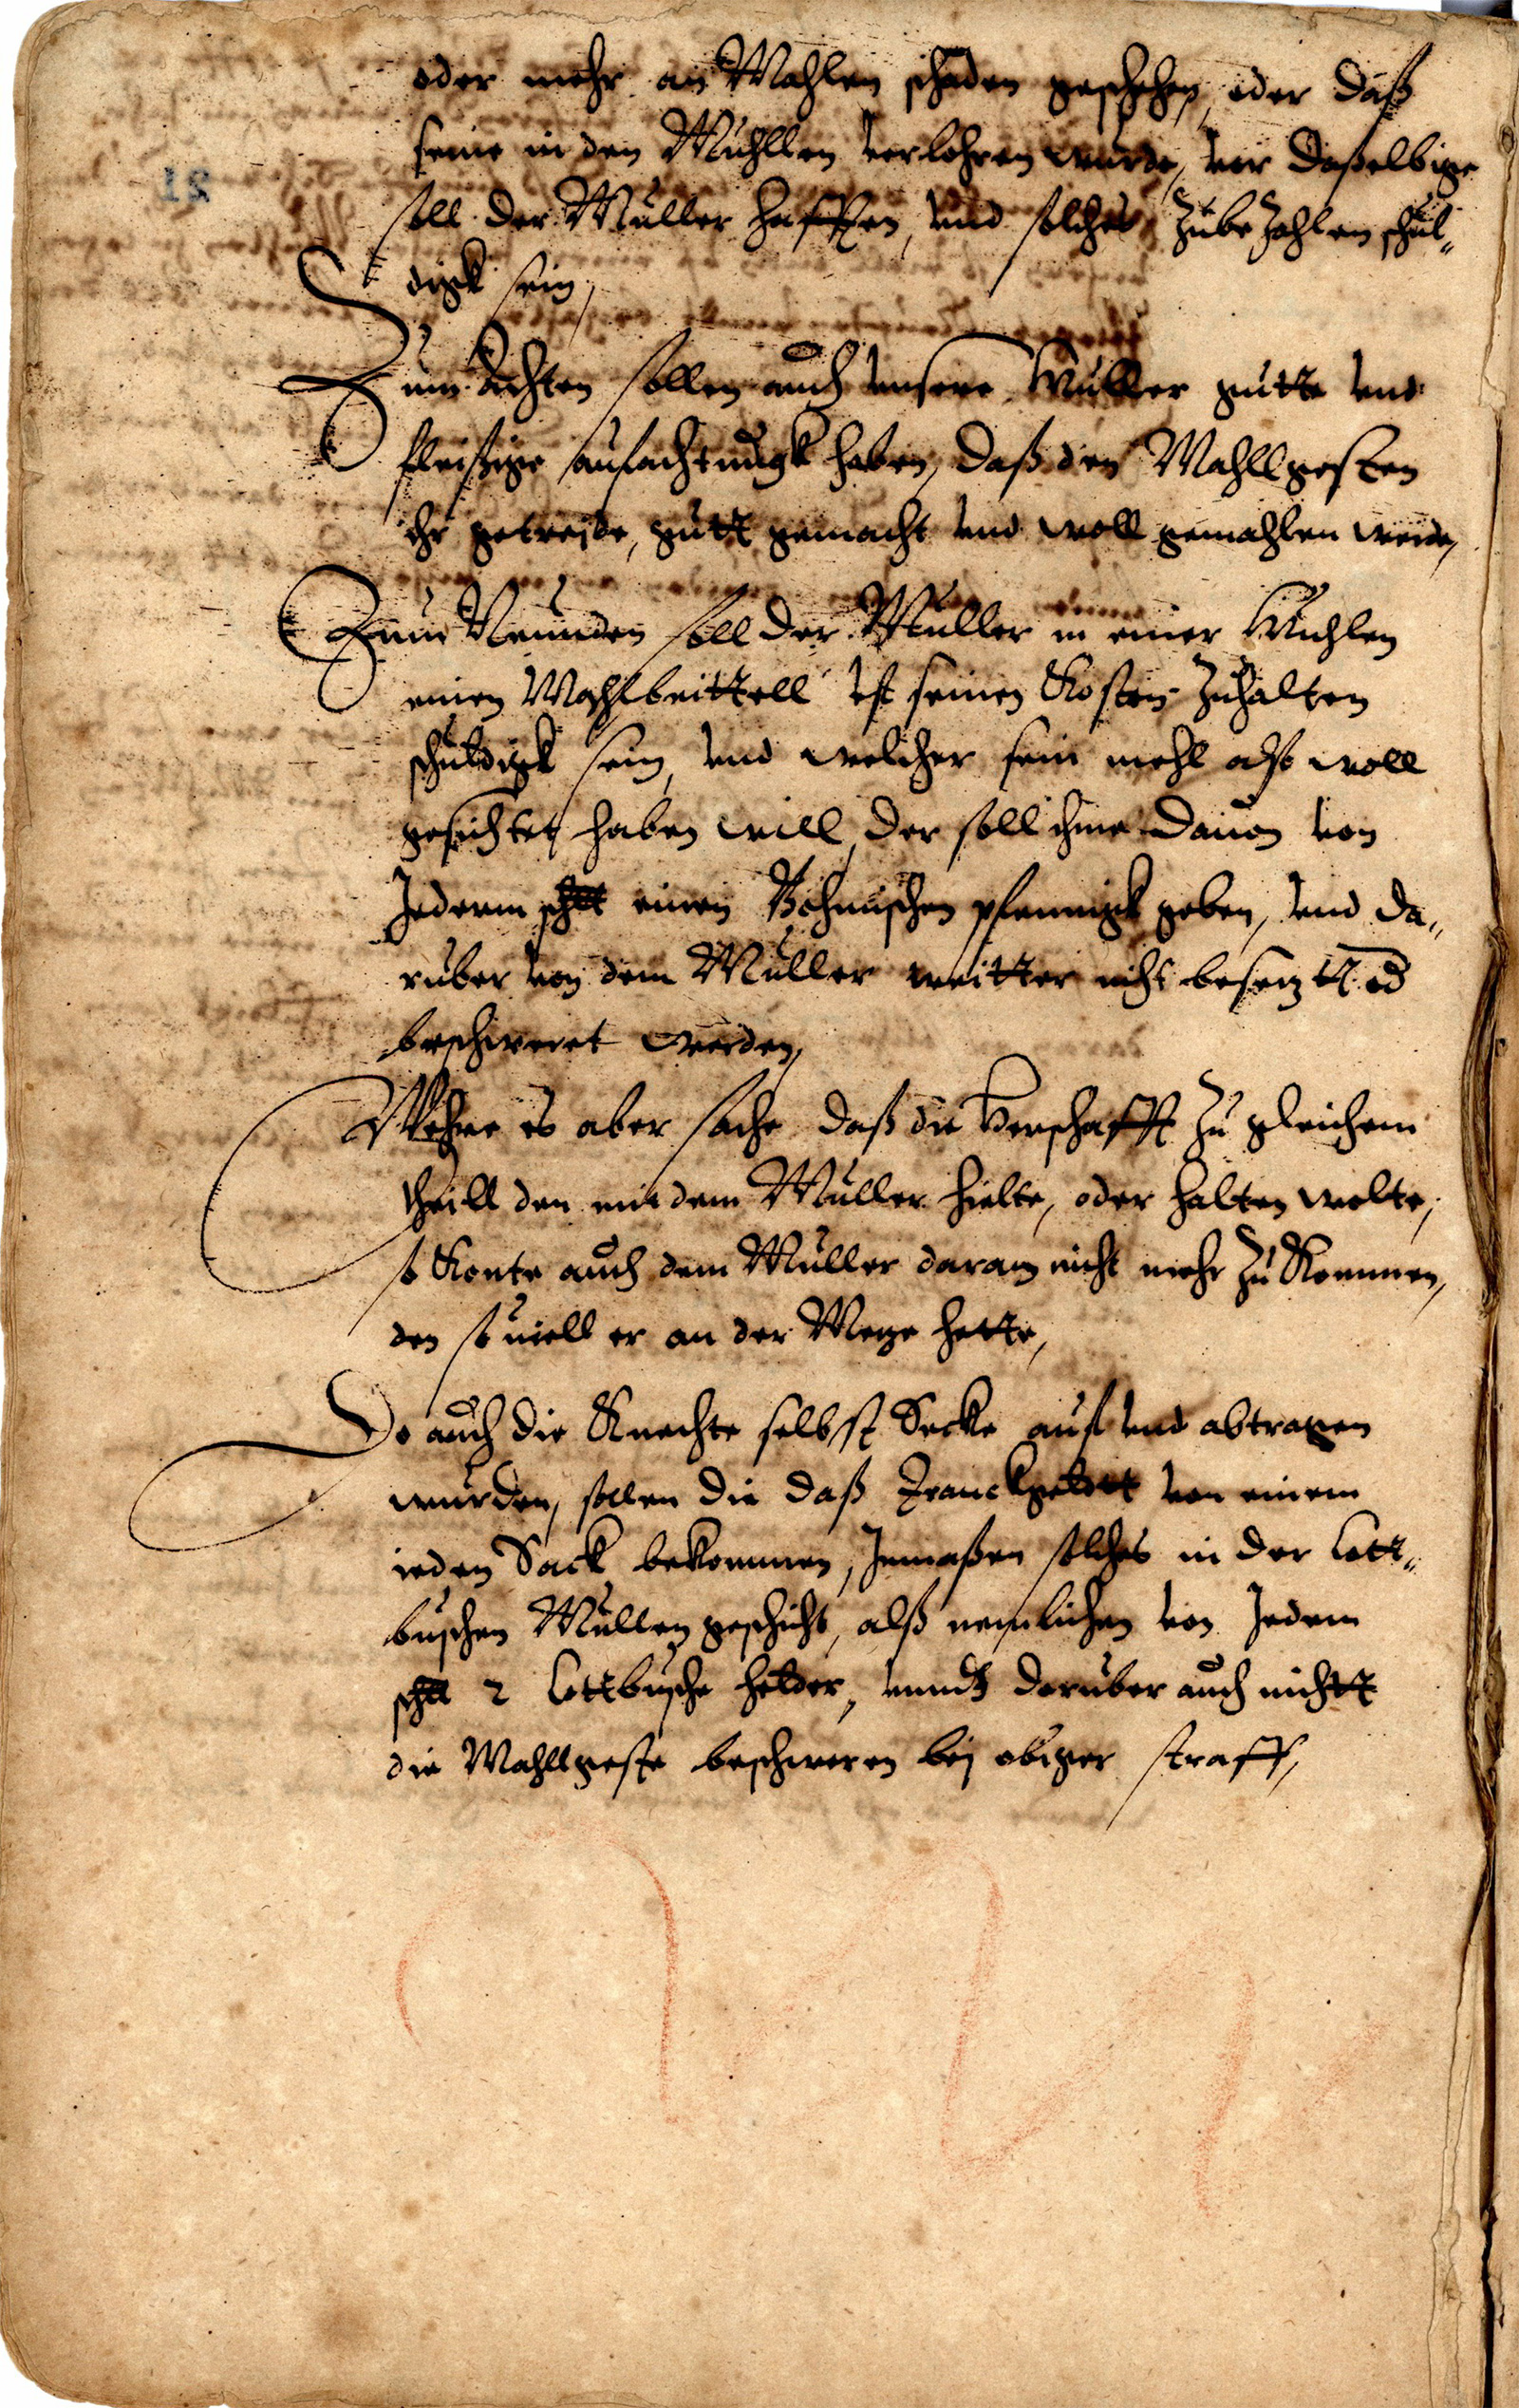 oder mehr an Mahlen schaden geschehen, oder daß
seine in den Muhllen verlohren wurde, vor daßelbige
soll der Muller hafften, vnd solches Zube Zahlen schul„
digk sein,
Zum Achten sollen auch vnsere Muller gutte vnd
fleißige aufachtungk haben, daß den Mahllgesten
ihr getreide, gutt gemacht vnd woll gemahlen werde,
Zum Neunden soll der Muller in einer Muhlen
einen Mahlbeittell vf seinen Kosten Zuhalten
schuldigk sein, vnd welcher sein mehl also woll
gesichtet haben will, der soll ihme dauon von
Jederm schll einen Bohmischen pfennigk geben, vnd da„
ruber von dem Muller weitter nicht
beschweret werden,
Wehre es aber sache daß die Herschafft Zu gleichem
theill den mit dem Muller hielte, oder halten wolte,
so Konte auch dem Muller daran nicht mehr Zu Kommen,
den so uiell er an der Metze hette,
Do auch die Knechte selbst Secke auf vnd abtragen
wurden, sollen die daß Tranckgeldt von einem
ieden Sack bekommen, Jnmaßen solches in der Cott„
buschen Mullen geschicht, alß nemlichen von Jedem
schll 2 Cottbusche heller, vnndt doruber auch nichtt
die Mahllgeste beschweren bej obiger straff,
21